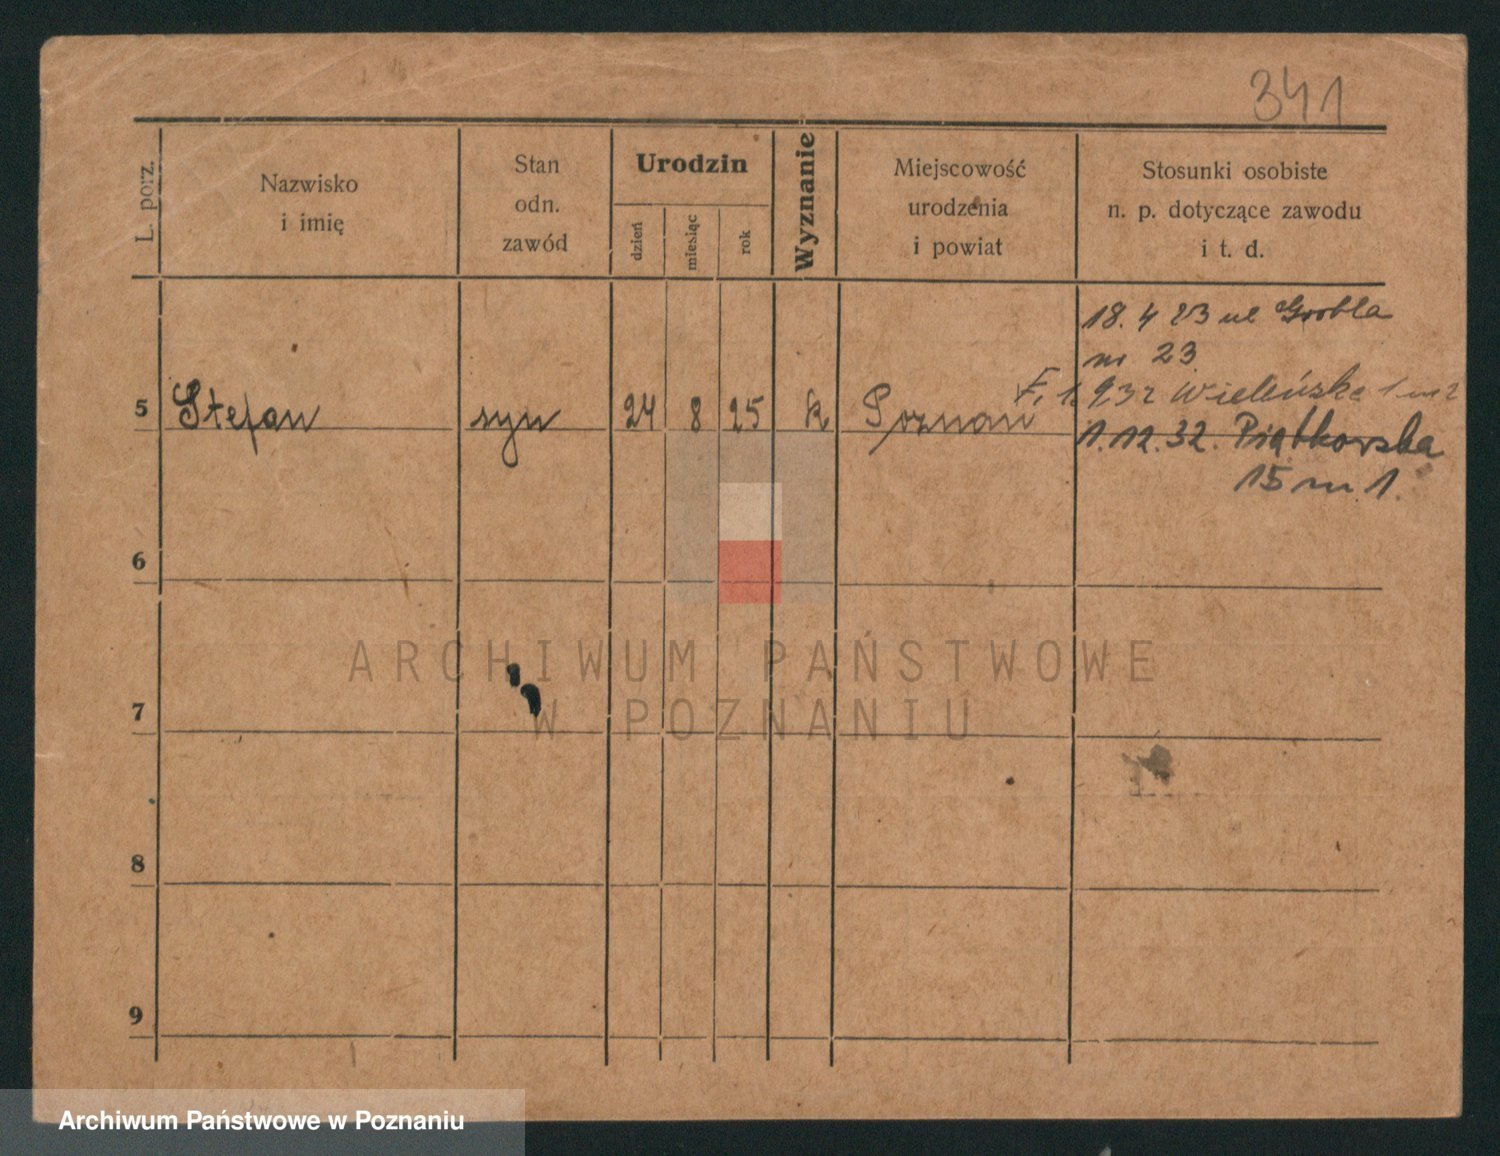 341
L. porz.
Nazwisko
i imię
Stan
odn.
zawód
Urodzin
dzień
miesiąc
rok
Wyznanie
Miejscowość
urodzenia
i powiat
Stosunki osobiste
n. p. dotyczące zawodu
i t. d.
18. 4 23 ul Grobla
nr 23
1. 932 Wieleńska 1 m 2
5 Stefan syn 24 8 25 k Poznań
1.12.32. Piątkowska
15 m. 1.
6
7
8
9
ARCHIWUM PAŃSTWOWE
W POZNANIU
Archiwum Państwowe w Poznaniu